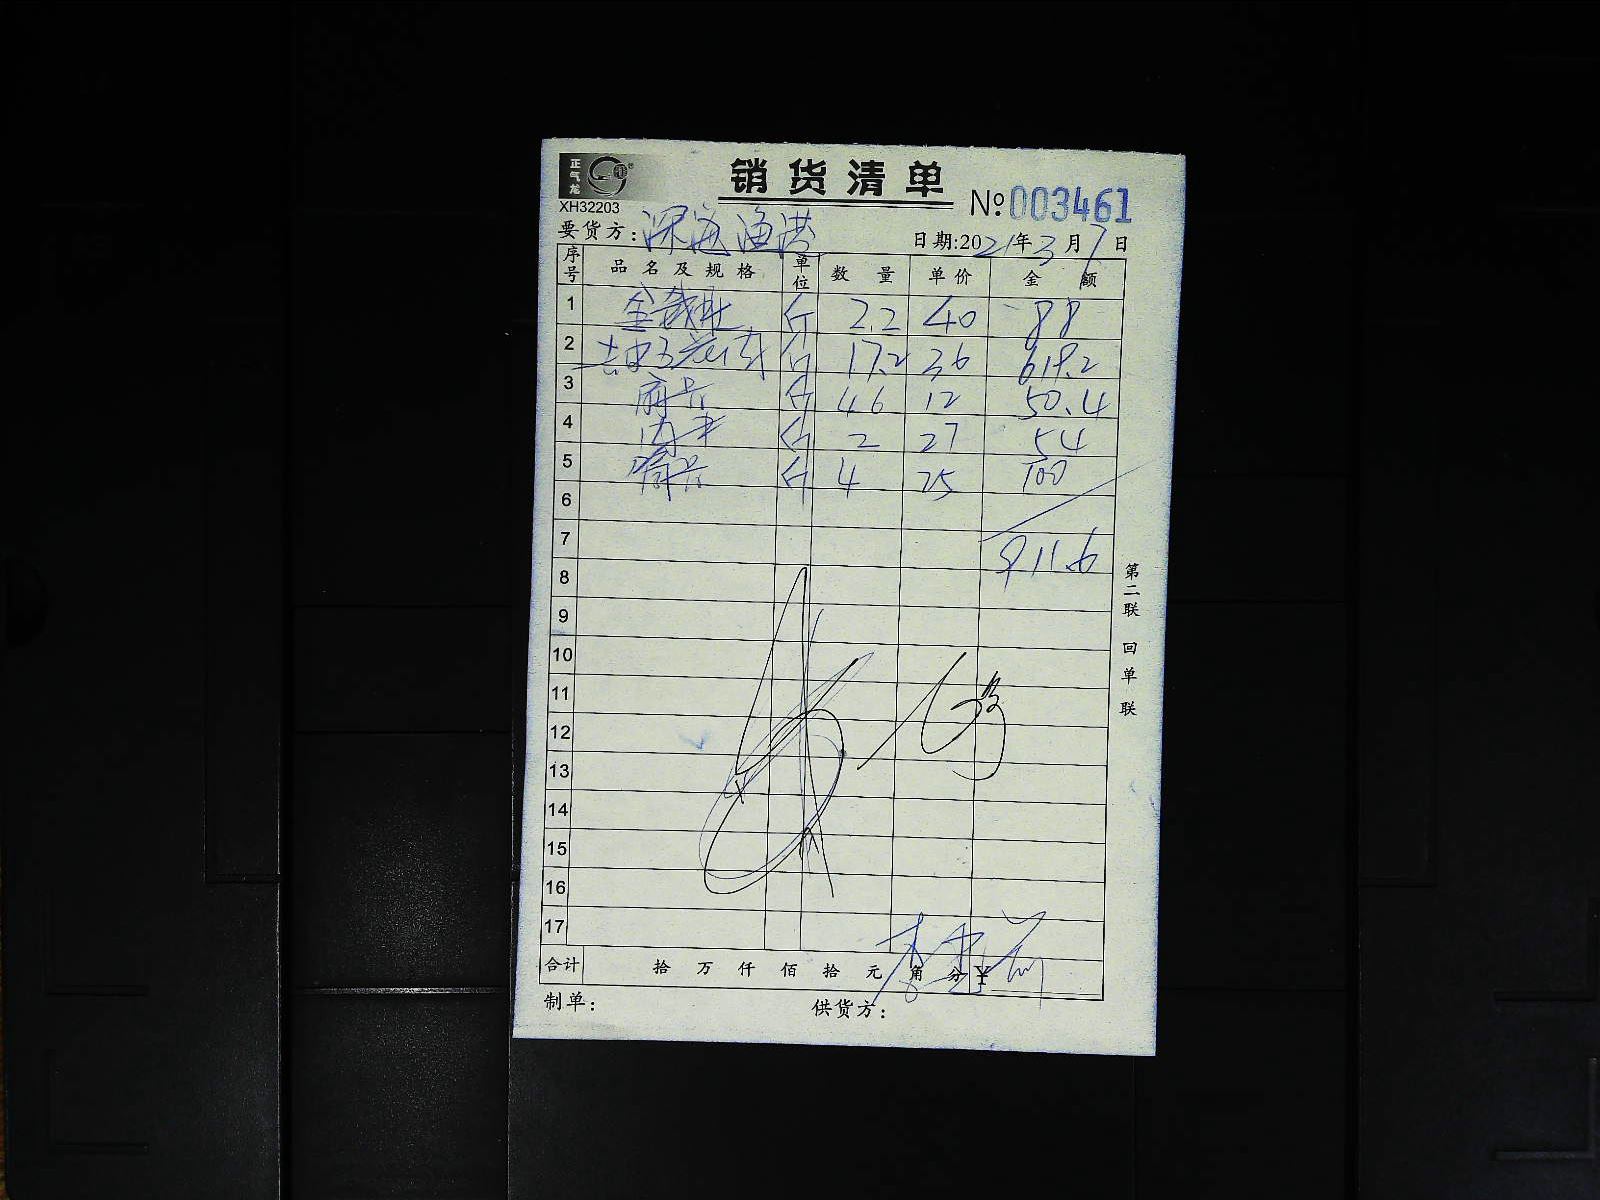 正气龙
销货清单
XH32203
№003461
要货方:深海渔港
日期:2021年3月7日
序号 品名及规格 单位 数量 单价 金额
1 金钱肚 斤 2.2 40 88
2 五花肉 斤 17.2 36 619.2
3 斤 12 50.4
4 斤 2 27 54
5 斤 4 25 100
6
7 911.6
8
9
10
11
12
13
14
15
16
17
合计 拾 万 仟 佰 拾 元 角 分 ¥
制单: 供货方:
第二联 回单联